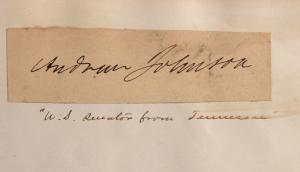 Andrew Johnson
"U.S. Senator from Tennessee"